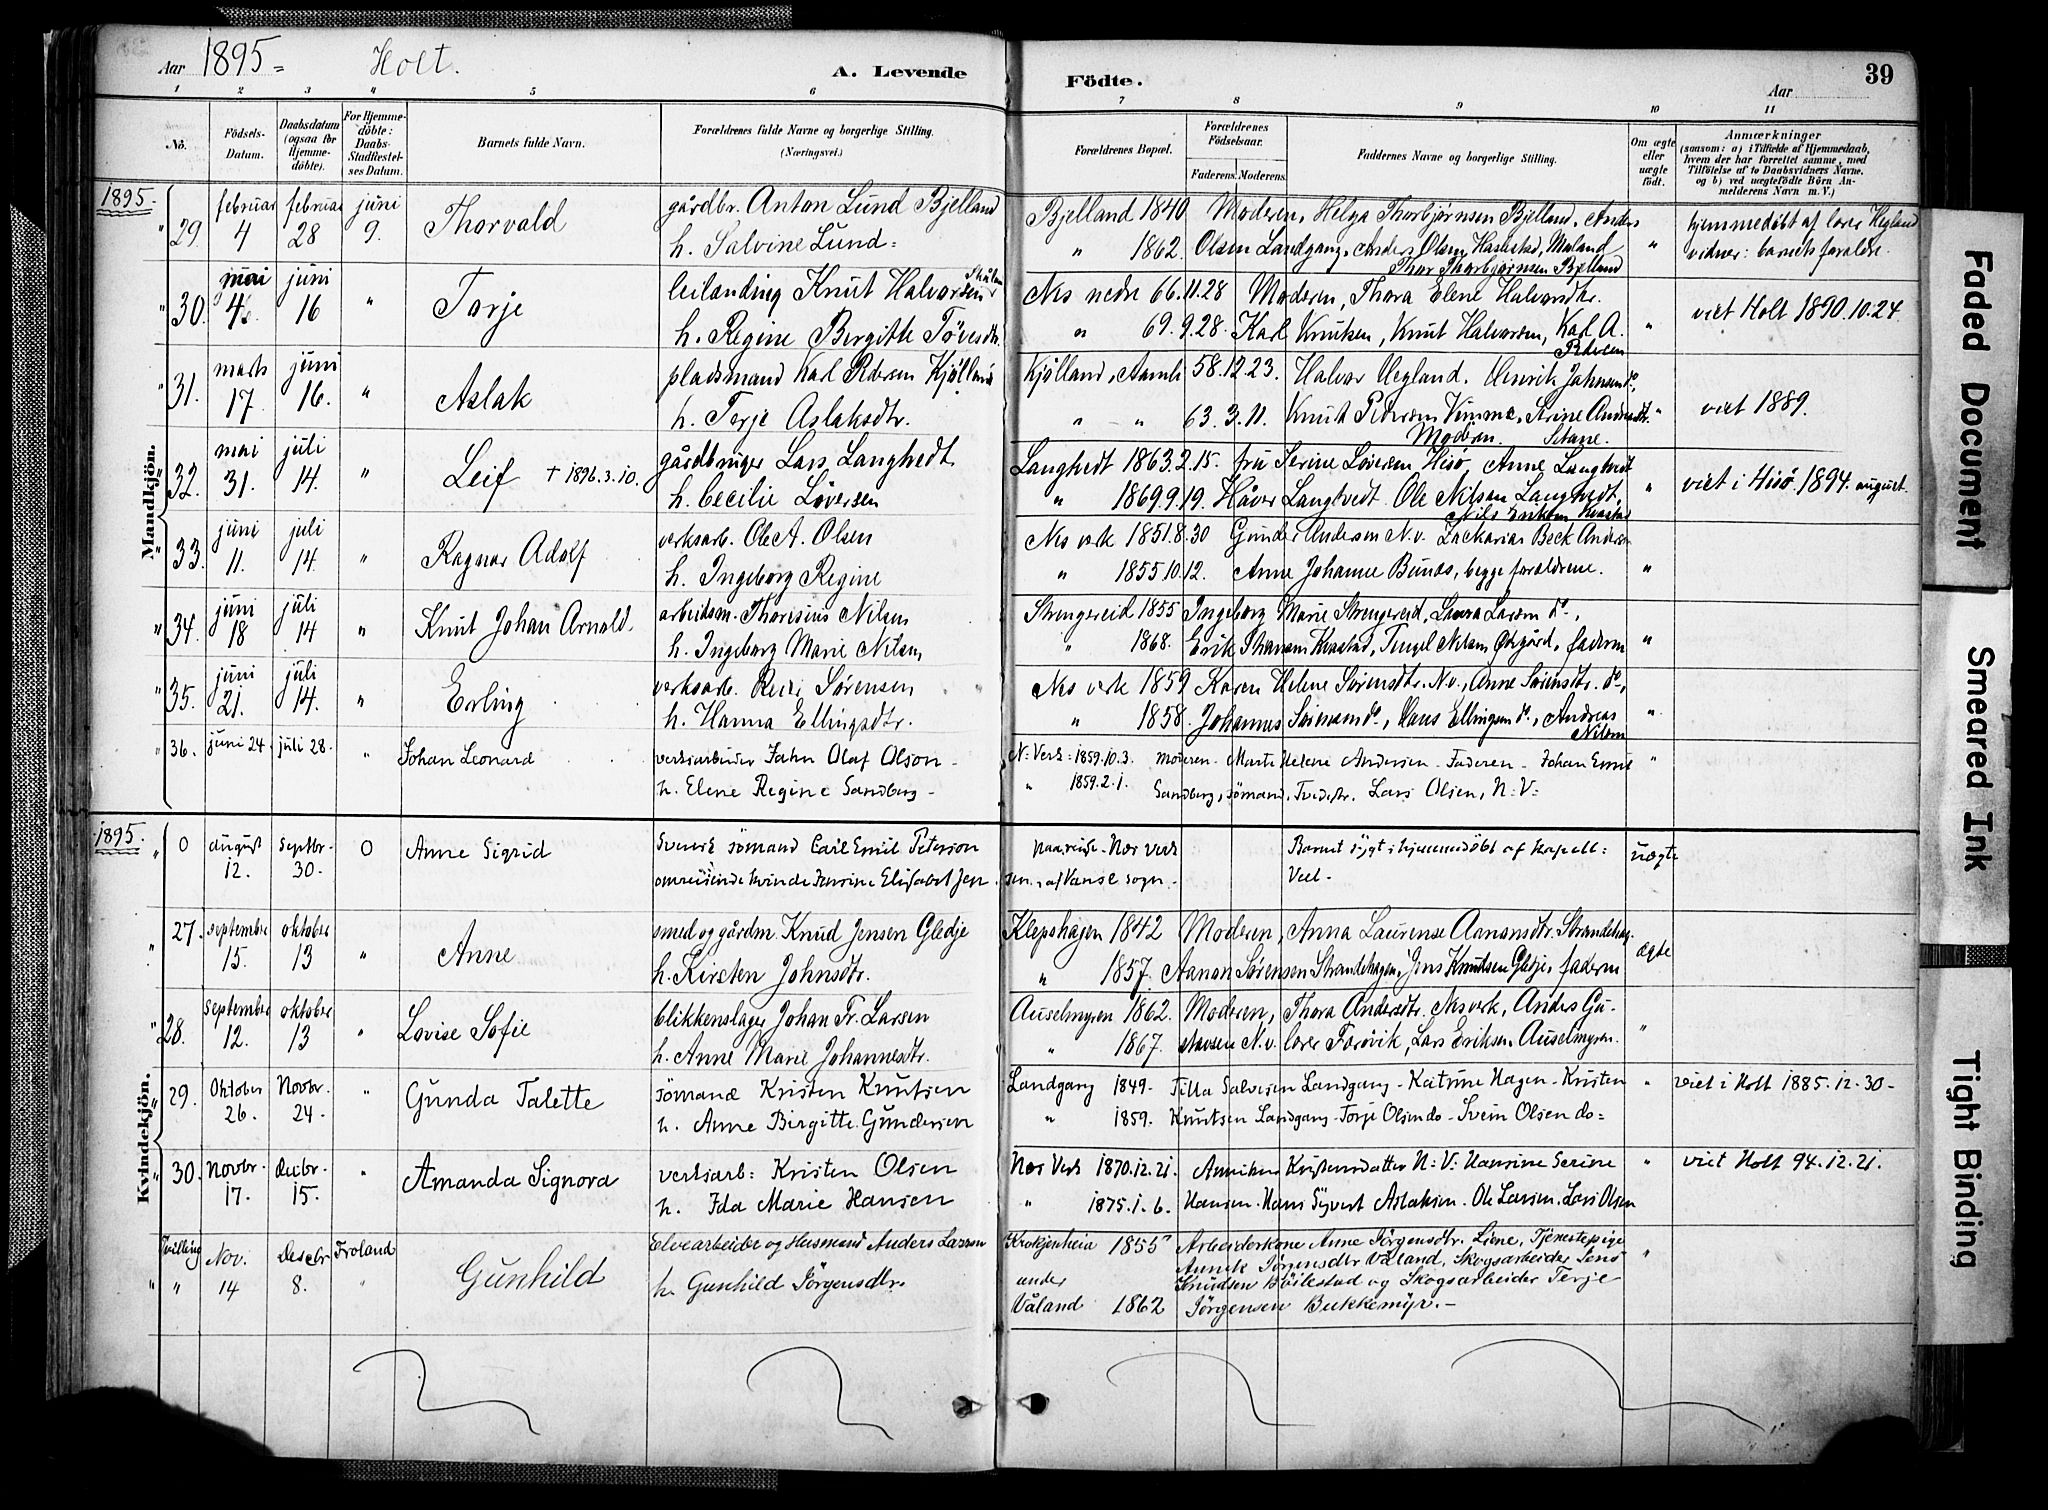 Aar 1895 = Holt. A. Levende Födte. Aar 39
1 2 3 4 5 6 7 8 9 10 11
No. Födsels-Datum. Daabsdatum (ogsaa for Hjemmedöbte). For Hjemmedöbte: Daabs-Stadfæstelses Datum. Barnets fulde Navn. Forældrenes fulde Navne og borgerlige Stilling. (Næringsvei.) Forældrenes Bopæl. Forældrenes Födselsaar. Faderens. Moderens. Faddernes Navne og borgerlige Stilling. Om ægte eller uægte født. Anmærkninger (saasom: a) i Tilfælde af Hjemmedaab, hvem der har forrettet samme, med Tilföielse af to Daabsvidners Navne. og b) ved uægtefödte Börn Anmelderens Navn m. V.)
Mandkjön.
1895.
" 29. februar 4 februar 28 juni 9. Thorvald gårdbr. Anton Lund Bjelland Bjelland 1840 Moderen, Helga Thorbjørnsen Bjelland, Anders hjemmedöbt af lærer Hegland
h. Salvine Lund = " 1862. Olsen Landgang, Anders Olsen Maland " vidner: barnets forældre.
Thor Thorbjørnsen Bjelland
" 30. mai 4 juni 16 " Terje leilænding Knut Halvorsen Nes nedre 66.11.28 Moderen, Thora Elene Halvorsdtr. viet Holt 1890.10.24
h. Regine Birgitte Tövesdtr. " 69.9.28. Karl Knutsen, Knut Halvorsen, Karl A. "
Pedersen
" 31. marts 17 juni 16. " Aslak pladsmand Karl Pedersen Kjölland Kjölland, Aamli 58.12.23. Halvor Hegland. Henrik Johnsen do,
h. Terje Aslaksdtr. " " 63.3.11. Knut Petersen Vimme, Serine Andersdtr. " viet 1889.
Moderen.
" 32. mai 31. juli 14. " Leif † 1896.3.10. gårdbruger Lars Langtvedt Langtvedt 1863.2.15. fru Serine Løversen Hisö, Anne Langtvedt
h. Cecilie Løversen " 1869.9.19. Håvor Langtvedt. Ole Nilsen Langtvedt, " viet i Hisö 1894. august.
Nils Eriksen Kvastad
" 33. juni 11. juli 14. " Ragnar Adolf verksarb. Ole A. Olsen Nes verk 1851.8.30 Gunder Andersen N.v. Zackarias Beck Andersen
h. Ingeborg Regine " 1855.10.12. Anne Johanne Bunds, begge forældrene. "
" 34. juni 18 juli 14 " Knut Johan Arnold. arbeidsm. Thoresius Nilsen Strengereid 1855 Ingeborg Marie Strengereid, Laura Larsen do,
h. Ingeborg Marie Nilsen, " 1868. Erik Kvastad, Tengel Nilsen Østgård, faderen "
" 35. juni 21. juli 14. " Erling verksarb. Sørensen Nes verk 1859 Karen Helene Sørensdtr. N.v., Anne Sørensdtr. do,
h. Hanna Ellingsdtr. " 1858. Johannes Sørensen do, Hans Ellingsen do, Andreas "
Nilsen
" 36. juni 24. juli 28. " Johan Leonard verksarbeider John Olaf Olson - N: Verk: 1859.10.3. Moderen - Marte Helene Andersen - Faderen - Johan Emil "
h. Elene Regine Sandberg - " 1859.2.1. Sandberg, sömand, Tvedestr. Lars Olsen, N:V:
Kvindekjön.
1895.
" 0 august 12. septbr. 30. 0 Anne Sigrid svensk sömand Carl Emil Peterson Nes Verk Barnet sygt: hjemmedöbt af kapell: uægte
omreisende kvinde Jensine Elisabet Jensen. af Vanse sogn. Veel -
" 27. september 15. oktober 13 " Anne smed og gårdm. Knud Jensen Gledje Klepshagen 1842 Moderen, Anna Laurense Aanonsdtr. Strandehag.
h. Kirsten Johnsdtr. " 1857. Aanon Sørensen Strandehagen, Jens Knutsen Gledje, faderen ægte
" 28. september 12. oktober 13 " Lovise Sofie blikkenslager Johan Fr. Larsen Auselmyren 1862. Moderen, Thora Andersdtr. Nesverk, Anders Gu-
h. Anne Marie Johannesdtr. " 1867. N.v. lærer Farövik, Lars Eriksen Auselmyren. "
" 29. Oktober 26. Novbr. 24. " Gunda Talette sömand Kristen Knutsen Landgang 1849- Tilla Salvesen Landgang - Katrine Hagen - Kristen " viet i Holt 1885.12.30-
h. Anne Birgitte Gundersen " 1859. Knutsen Landgang - Torje Olsen do - Svein Olsen do =
" 30. Novbr. 17. Decbr. 15. " Amanda Signora verksarb: Kristen Olsen Nes Verk 1870.12.21. Kristensdatter N:V: Hansine Serine " viet Holt 94.12.21.
h. Ida Marie Hansen " 1875.1.6. Hansen. Hans Syvert Aslaksen. Ole Larsen. Lars Olsen
Tvilling " " Nov. 14 Decebr 8. Froland " Gunhild Elvearbeider og Husmand Anders Larsen Krokjenheia 1855 Arbeiderkone Anne Jörgensdtr. Liene, Tjenestepige "
h. Gunhild Jörgensdtr. under Annik Jörgensdtr Våland, Skogsarbeider Jens
Knudsen Böilestad og Skogsarbeider Terje
Våland 1862 Jörgensen Bukkemyr. -
Faded Document
Smeared Ink
Tight Binding